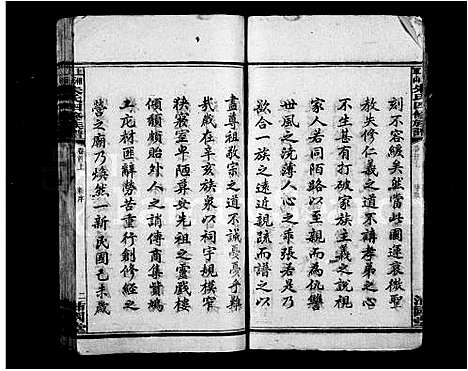 刻不容緩矣然當此國運衰微聖
教失修仁義之道不講孝弟之心
不生甚有打破家族主義之說以
家人若同陌路以至親而為仇讐
世風之澆薄人心之乖張若是乃
欲合一族之遠近親疏而譜之以
盡尊祖敬宗之道不誠戛戛乎難
哉歲在辛亥族衆以祠宇規模窄
狹寢室卑陋異安先祖之靈戲樓
傾頹貽外人之誚傳商集賢鳩
工庀材匪辭勞苦重行創修經之
營之廟乃煥然一新民國己未歲
卷首上
序
二